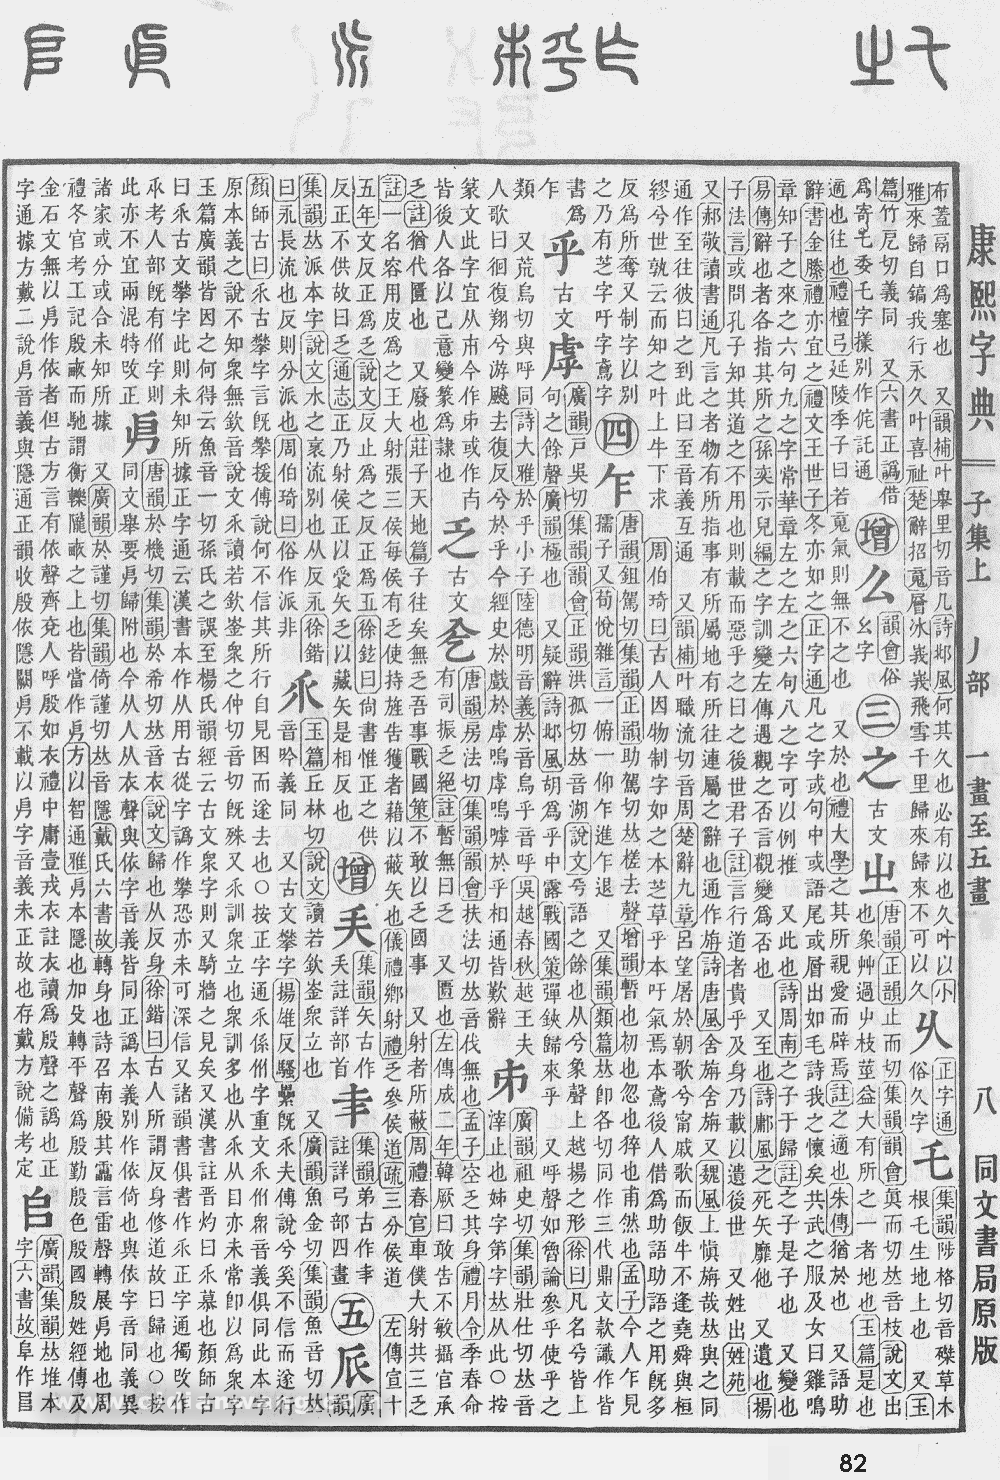 康熙字典 子集上 丿部 一畫至五畫 八 同文書局原版
布蓋鬲口爲塞也 又韻補叶舉里切音几詩邶風何其久也必有以也久叶以小
雅來歸自鎬我行永久叶喜祉楚辭招䰟層冰峩峩飛雪千里歸來歸來不可以久
乆 正字通俗久字
乇 集韻陟格切音磔草木根乇生地上也 又玉
篇竹尼切義同 又六書正譌借爲寄乇委乇字㨾別作侂託通
增 么 韻會俗幺字
三 之 古文 㞢 唐韻正韻止而切集韻韻會眞而切𠀤音枝說文出也象艸過屮枝莖益大有所之一者地也玉篇是也
適也往也禮檀弓延陵季子曰若䰟氣則無不之也 又於也禮大學之其所親愛而辟焉註之適也朱傳猶於也 又語助
辭書金縢禮亦宜之禮文王世子冬亦如之正字通凡之字或句中或語尾或層出如毛詩我之懷矣共武之服及女曰雞鳴
章知子之來之六句九之字常華章左之左之六句八之字可以例推 又此也詩周南之子于歸註之子是子也 又變也
易傳辭也者各指其所之孫奕示兒編之字訓變左傳遇觀之否言觀變爲否也 又至也詩鄘風之死矢靡他 又遺也揚
子法言或問孔子知其道之不用也則載而惡乎之曰之後世君子註言行道者貴乎及身乃載以遺後世 又姓出姓苑
又郝敬讀書通凡言之者物有所指事有所屬地有所往連屬之辭也通作旃詩唐風舍旃舍旃又魏風上愼旃哉𠀤與之同
通作至往彼曰之到此曰至音義互通 又韻補叶職流切音周楚辭九章呂望屠於朝歌兮甯戚歌而飯牛不逢堯舜與桓
繆兮世孰云而知之叶上牛下求 周伯琦曰古人因物制字如之本芝草乎本吁氣焉本鳶後人借爲助語助語之用旣多
反爲所奪又制字以別之乃有芝字吁字鳶字
四 乍 唐韻鉏駕切集韻正韻助駕切𠀤槎去聲增韻暫也初也忽也猝也甫然也孟子今人乍見孺子又荀悅雜言一俯一仰乍進乍退 又集韻類篇𠀤卽各切同作三代鼎文款識作皆
書爲乍
乎 古文 虖 廣韻戸吳切集韻韻會正韻洪孤切𠀤音湖說文兮語之餘也从兮象聲上越揚之形徐曰凡名兮皆句之餘聲廣韻極也 又疑辭詩邶風胡爲乎中露戰國策彈鋏歸來乎 又呼聲如嘗論參乎使乎之
類 又荒烏切與呼同詩大雅於乎小子陸德明音義於音烏乎音呼吳越春秋越王夫
人歌曰徊復翔兮游颺去復反兮於乎今經史於戲於虖嗚虖嗚嘑於乎相通皆歎辭
𠂔 廣韻祖史切集韻壯仕切𠀤滓止也姊字第字𠀤从此〇按
篆文此字宜从𣎵今作𠂔或作
皆後人各以己意變篆爲隸也
乏 古文 唐韻房法切集韻韻會扶法切𠀤音伐無也孟子空乏其身禮月令季春命有司振乏絕註暫無曰乏 又匱也左傳成二年韓厥曰敢告不敏攝官承
乏註猶代匱也 又廢也莊子天地篇子往矣無乏吾事戰國策不敢以乏國事 又射者所蔽周禮春官車僕大射共三乏
註一名容用皮爲之王大射張三侯每侯有乏使持旌告獲者藉以蔽矢也儀禮鄉射禮乏參侯道疏三分侯道 左傳宣十
五年文反正爲乏說文反止爲之反正爲五徐鉉曰尙書惟正之供
反正不供故曰乏通志正乃射侯正以受矢乏以藏矢是相反也
增 𠂕 集韻矢古作𠂕註詳部首
集韻弟古作 註詳弓部四畫
五 𠂢 廣韻
集韻𠀤派本字說文水之衺流別也从反永徐鍇
曰永長流也反則分派也周伯琦曰俗作派非
乑 玉篇丘林切說文讀若欽崟衆立也 又廣韻魚金切集韻魚音切𠀤音吟義同 又古文攀字揚雄反騷纍旣乑夫傳說兮奚不信而遂行
顏師古曰乑古攀字言旣攀援傅說何不信其所行自見困而遂去也〇按正字通乑係㐺字重文乑㐺衆音義俱同此本字
原本義之說不知衆無欽音說文乑讀若欽崟衆之仲切音切旣殊又乑訓衆立也衆訓多也从乑从目亦未常卽以爲衆字
玉篇廣韻皆因之何得云魚音一切孫氏之誤至楊氏韻經云古文衆字則又騎牆之見矣又漢書註晋灼曰乑慕也顏師古
曰乑古文攀字此則未知所據正字通云漢書本作从用古從字譌作攀恐亦未可深信又諸韻書俱書作乑正字通獨攺作
承考人部旣有㐺字則
此亦不宜兩混特攺正
㐆 唐韻於機切集韻於希切𠀤音衣說文歸也从反身徐鍇曰古人所謂反身修道故曰歸也〇按同文舉要㐆歸附也今从人从衣聲與依字音義皆同正譌本義別作依倚也與依字音同義異
諸家或分或合未知所據 又廣韻於謹切集韻倚謹切𠀤音隱戴氏六書故轉身也詩召南殷其靁言雷聲轉展㐆地也周
禮冬官考工記殷畞而馳謂衡轢隴畞之上也皆當作㐆方以智通雅㐆本隱也加殳轉平聲爲殷勤殷色殷國殷姓經傳及
金石文無以㐆作依者但古方言有依聲齊兗人呼殷如衣禮中庸壹戎衣註衣讀爲殷聲之譌也正
字通據方戴二說㐆音義與隱通正韻收殷依隱闗㐆不載以㐆字音義未正故也存戴方說備考定
𠂤 廣韻集韻𠀤堆本字六書故阜作𠂤
82